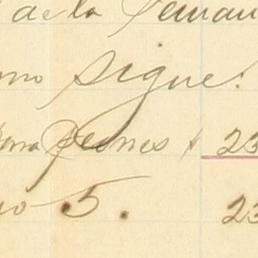 de la Semana
como sigue.
para peones $ 23
no 5. 23